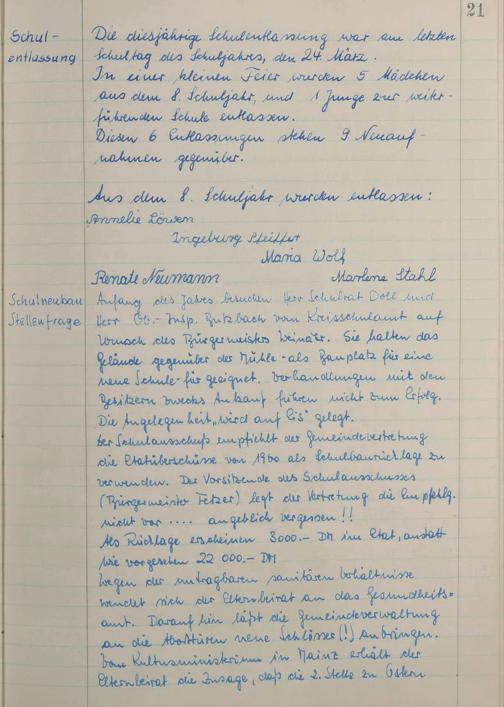 21
Schul-
entlassung
Die diesjährige Schulentlassung war am letzten
Schultag des Schuljahres, den 24. März.
In einer kleinen Feier wurden 5 Mädchen
aus dem 8. Schuljahr, und 1 Junge zur weiter-
führenden Schule entlassen.
Diesen 6 Entlassungen stehen 9 Neuauf-
nahmen gegenüber.
Aus dem 8. Schuljahr wurden entlassen:
Annelie Löwen
Ingeburg Pfeiffer
Maria Wolf
Renate Neumann
Marlene Stahl
Schulneubau
Stellenfrage
Anfang des Jahres besuchen Herr Schulrat Doll und
Herr Ob.-Insp. Butzbach vom Kreisschulamt auf
Wunsch des Bürgermeisters Weinähr. Sie halten das
Gelände gegenüber der Mühle - als Bauplatz für eine
neue Schule - für geeignet. Verhandlungen mit den
Besitzern zwecks Ankauf führen nicht zum Erfolg.
Die Angelegenheit „wird auf Eis" gelegt.
Der Schulausschuß empfiehlt der Gemeindevertretung
die Etatüberschüsse von 1960 als Schulbaurücklage zu
verwenden. Der Vorsitzende des Schulausschusses
(Bürgermeister Fetzer) legt der Vertretung die Empfehlg.
nicht vor .... angeblich vergessen!!
Als Rücklage erscheinen 3000.- DM im Etat, anstatt
wie vorgesehen 22 000.- DM
Wegen der untragbaren sanitären Verhältnisse
wendet sich der Elternbeirat an das Gesundheits=
amt. Daraufhin läßt die Gemeindeverwaltung
an die Aborttüren neue Schlösser (!) anbringen.
Vom Kultusministerium in Mainz erhält der
Elternbeirat die Zusage, daß die 2. Stelle zu Ostern